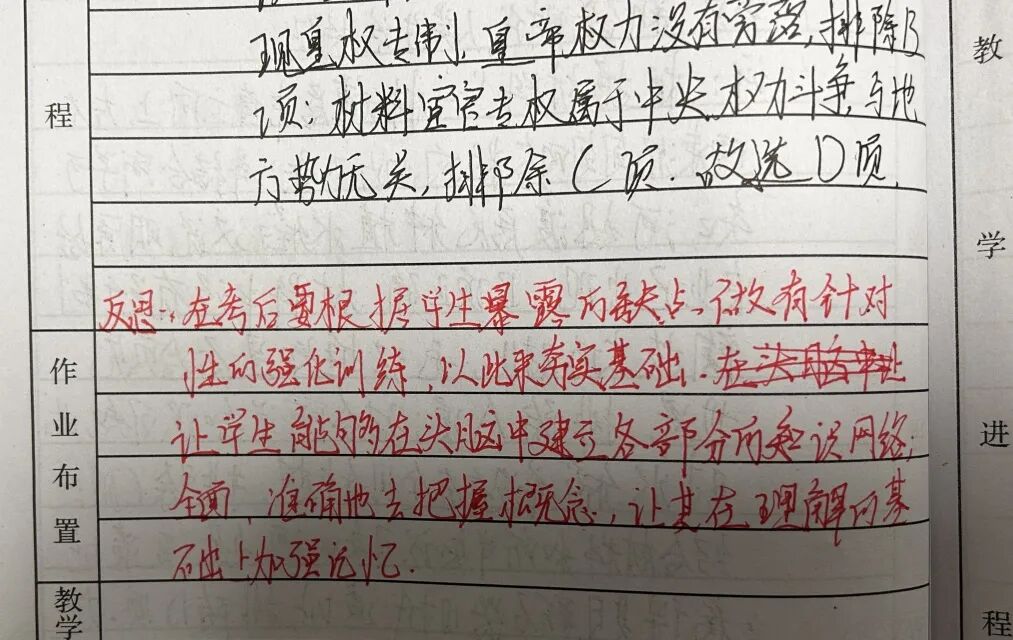 程
现皇权专制，皇帝权力没有旁落，排除B
项；材料宦官专权属于中央权力斗争，与地
方势力无关，排除C项．故选D项．
反思：在考后要根据学生暴露的缺点．做有针对
性的强化训练，以此来夯实基础．
让学生能够在头脑中建立各部分的知识网络；
全面、准确地去把握概念，让其在理解的基
础上加强记忆．
作业布置
教学
教学进程